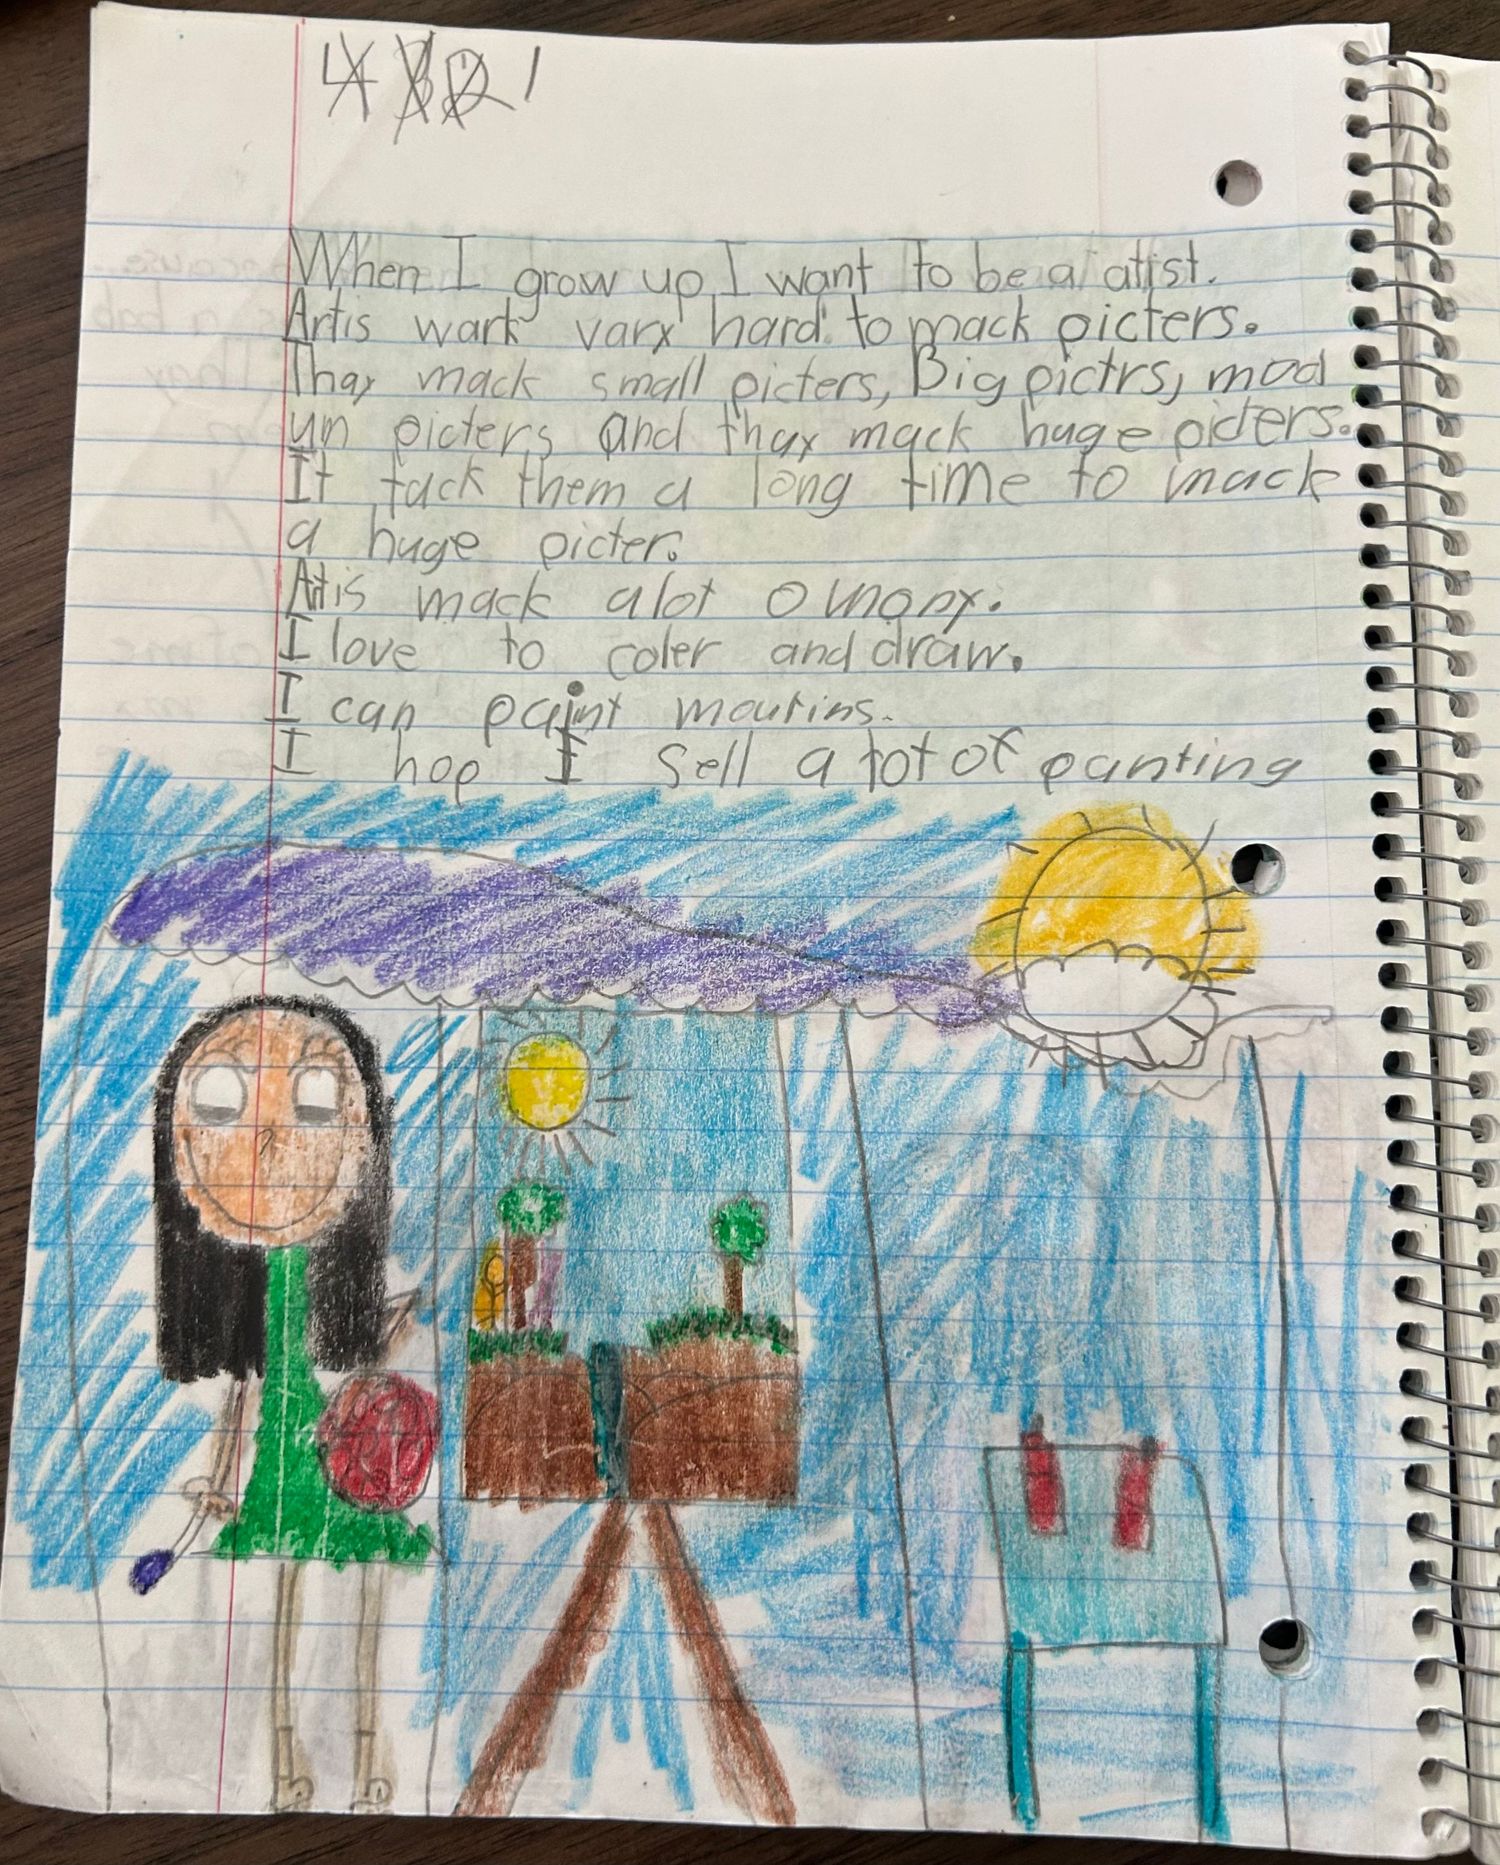 1
When I grow up, I want to be a atist.
Artis wark varx hard to mack picters.
Thay mack small picters, Big pictrs, mod
um picters and thay mack huge picters.
It tack them a long time to mack
a huge picter.
Artis mack a lot o monx.
I love to coler and draw.
I can paint moutins.
I hop I sell a lot of panting